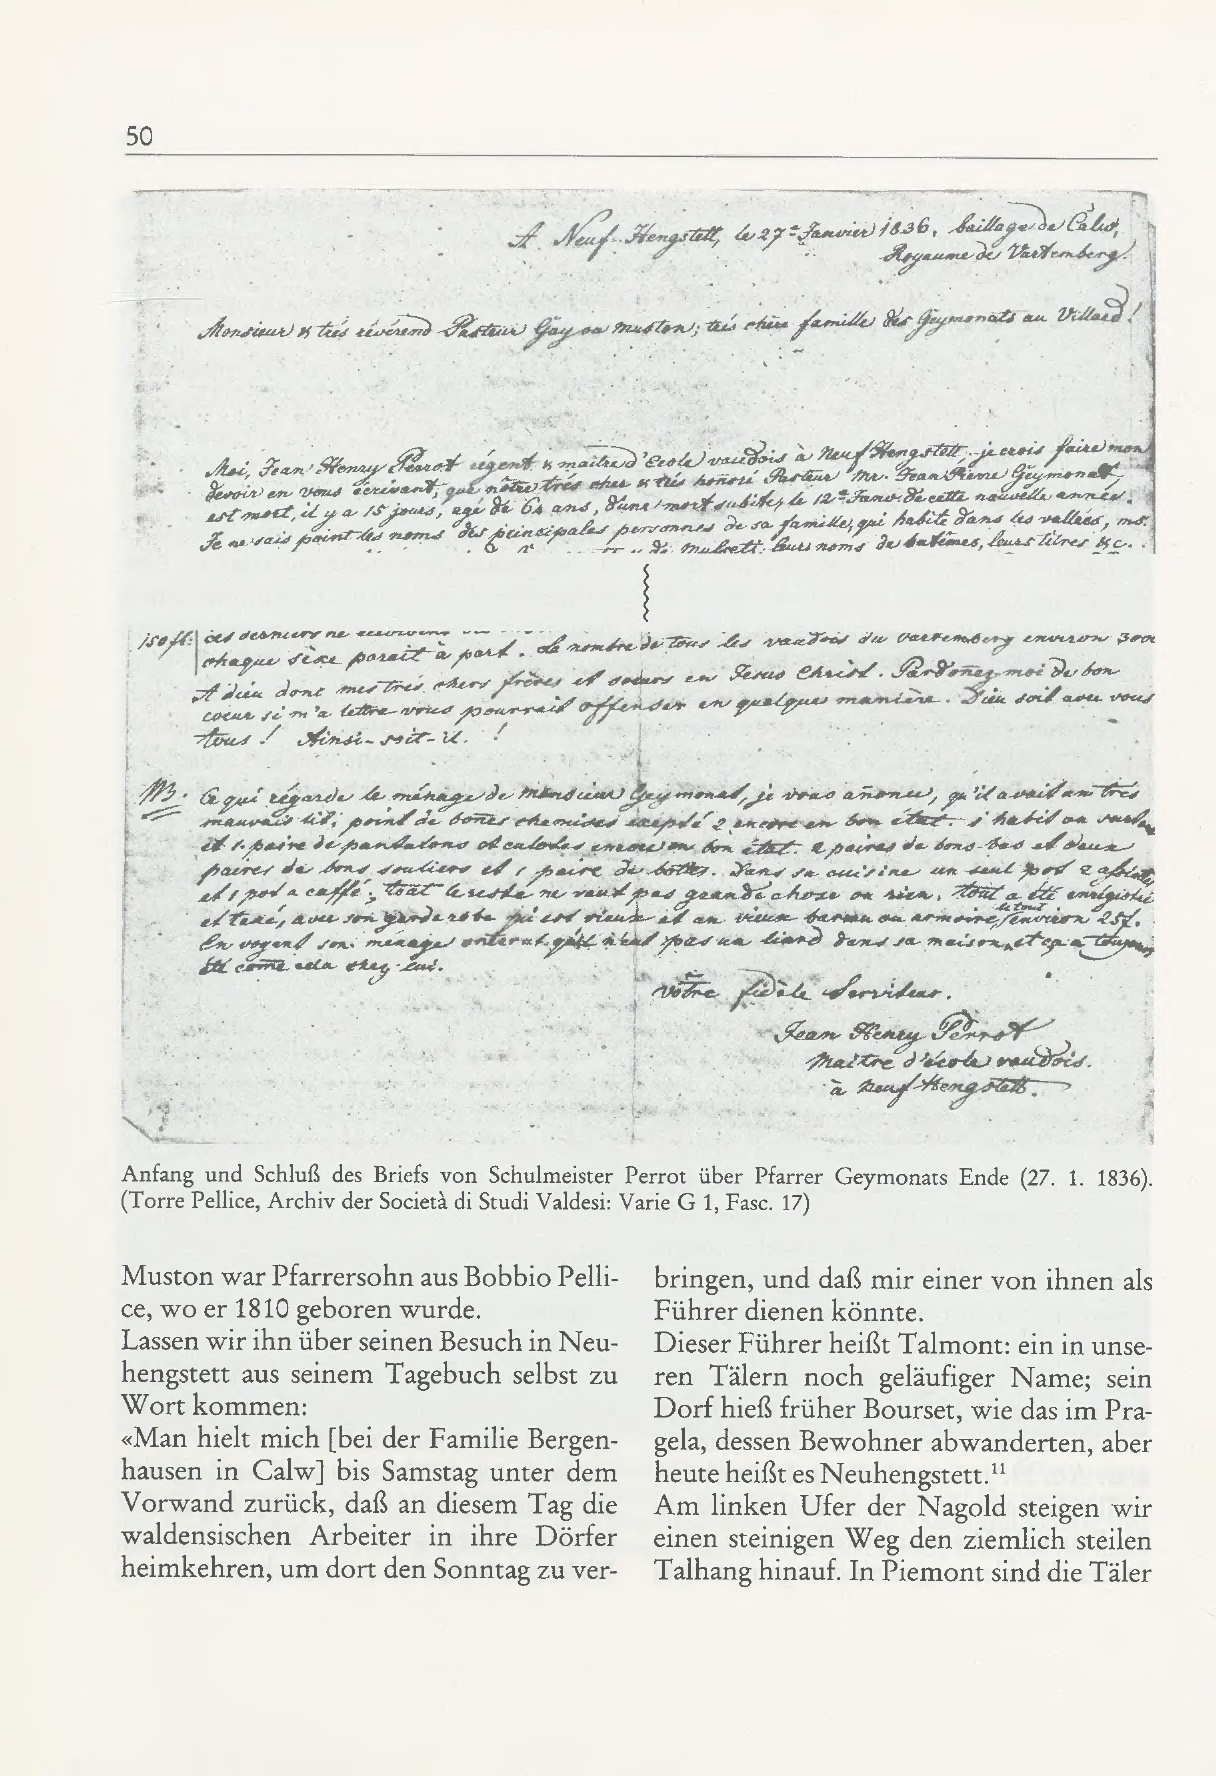 50
A Neuf-Hengstett, le 27e Janvier 1836, baillage de Calw,
Royaume de Vartemberg.
Monsieur & très révérend Pasteur Gay ou Muston; très chère famille des Geymonats au Villard!
Moi, Jean Henry Perrot régent & maitre d'Ecole vaudois à Neuf Hengstett, je crois faire mon
devoir en vous écrivant, que nôtre très cher & très honoré Pasteur Mr. Jean Pierre Geymonat,
est mort, il y a 15 jours, agé de 64 ans, d'une mort subite, le 12e Janv. de cette nouvelle année.
Je ne sais point les noms des principales personnes de sa famille, qui habite dans les vallées,
leurs noms de batêmes, leurs titres &c.
150 fl. ces derniers ne
chaque sèxe parait à part. Le nombre de tous les vaudois du vartemberg environ
A dieu donc mes très chers frères et soeurs en Jesus Christ. Pardoñez-moi de bon
coeur si m'a lettre vous pourrait offenser en quelque manière. Dieu soit avec vous
tous! Ainsi-soit-il.!
NB. Ce qui régarde le ménage de Monsieur Geymonat, je vous añonce, qu'il avait un très
mauvais lit; point de bones chemises exepté 2 encore en bon état. 1 habit ou
et 1 paire de pantalons et calotes encore en bon état. 2 paires de bons bas et deux
paires de bons souliers et 1 paire de bottes. Dans sa cuisine un seul pot 2 assiettes
et 1 pot a caffé; tout le reste ne vaut pas grande chose ou rien. tout a été enrégistré
et taxé, avec son garde robe qui est vieux et un vieux bureau ou armoire, le tout environ 25f.
En voyent son ménage on qu'il n'eut pas un liard dans sa maison, et ça a toujours
été come cela chez-lui.
vôtre fidèle Serviteur.
Jean Henry Perrot
Maitre d'école vaudois.
à Neuf-Hengstett.
Anfang und Schluß des Briefs von Schulmeister Perrot über Pfarrer Geymonats Ende (27. 1. 1836).
(Torre Pellice, Archiv der Società di Studi Valdesi: Varie G 1, Fasc. 17)
Muston war Pfarrersohn aus Bobbio Pelli-
ce, wo er 1810 geboren wurde.
Lassen wir ihn über seinen Besuch in Neu-
hengstett aus seinem Tagebuch selbst zu
Wort kommen:
«Man hielt mich [bei der Familie Bergen-
hausen in Calw] bis Samstag unter dem
Vorwand zurück, daß an diesem Tag die
waldensischen Arbeiter in ihre Dörfer
heimkehren, um dort den Sonntag zu ver-
bringen, und daß mir einer von ihnen als
Führer dienen könnte.
Dieser Führer heißt Talmont: ein in unse-
ren Tälern noch geläufiger Name; sein
Dorf hieß früher Bourset, wie das im Pra-
gela, dessen Bewohner abwanderten, aber
heute heißt es Neuhengstett.¹¹
Am linken Ufer der Nagold steigen wir
einen steinigen Weg den ziemlich steilen
Talhang hinauf. In Piemont sind die Täler